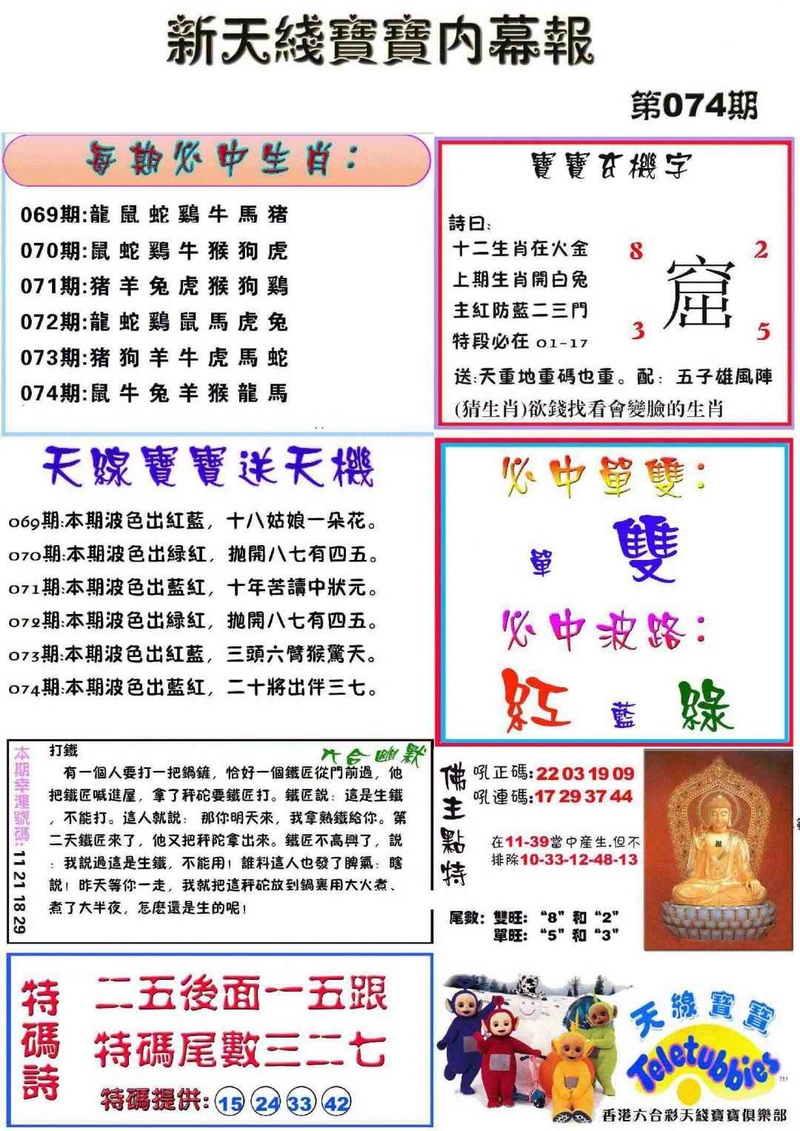 新天綫寶寶内幕報
第074期
每期必中生肖：
069期:龍鼠蛇鷄牛馬猪
070期:鼠蛇鷄牛猴狗虎
071期:猪羊兔虎猴狗鷄
072期:龍蛇鷄鼠馬虎兔
073期:猪狗羊牛虎馬蛇
074期:鼠牛兔羊猴龍馬
寶寶玄機字
詩曰:
十二生肖在火金
上期生肖開白兔
主紅防藍二三門
特段必在 01-17
8 2
窟
3 5
送:天重地重碼也重。配：五子雄風陣
(猜生肖)欲錢找看會變臉的生肖
天線寶寶送天機
069期:本期波色出紅藍，十八姑娘一朵花。
070期:本期波色出緑紅，拋開八七有四五。
071期:本期波色出藍紅，十年苦讀中狀元。
072期:本期波色出緑紅，拋開八七有四五。
073期:本期波色出紅藍，三頭六臂猴驚天。
074期:本期波色出藍紅，二十將出伴三七。
必中單雙：
單 雙
必中波路：
紅 藍 綠
本期幸運號碼:11 21 18 29
六合幽默
打鐵
有一個人要打一把鍋鏟，恰好一個鐵匠從門前過，他
把鐵匠喊進屋，拿了秤砣要鐵匠打。鐵匠説：這是生鐵
，不能打。這人就説：那你明天來，我拿熟鐵給你。第
二天鐵匠來了，他又把秤陀拿出來。鐵匠不高興了，説
：我説過這是生鐵，不能用！誰料這人也發了脾氣：瞎
説！昨天等你一走，我就把這秤砣放到鍋裏用大火煮、
煮了大半夜，怎麽還是生的呢！
佛主點特
吼正碼:22 03 19 09
吼連碼:17 29 37 44
在11-39當中産生.但不
排除10-33-12-48-13
尾數：雙旺：“8”和“2”
單旺：“5”和“3”
特碼詩
二五後面一五跟
特碼尾數三二七
特碼提供: 15 24 33 42
天線寶寶
Teletubbies
香港六合彩天綫寶寶俱樂部